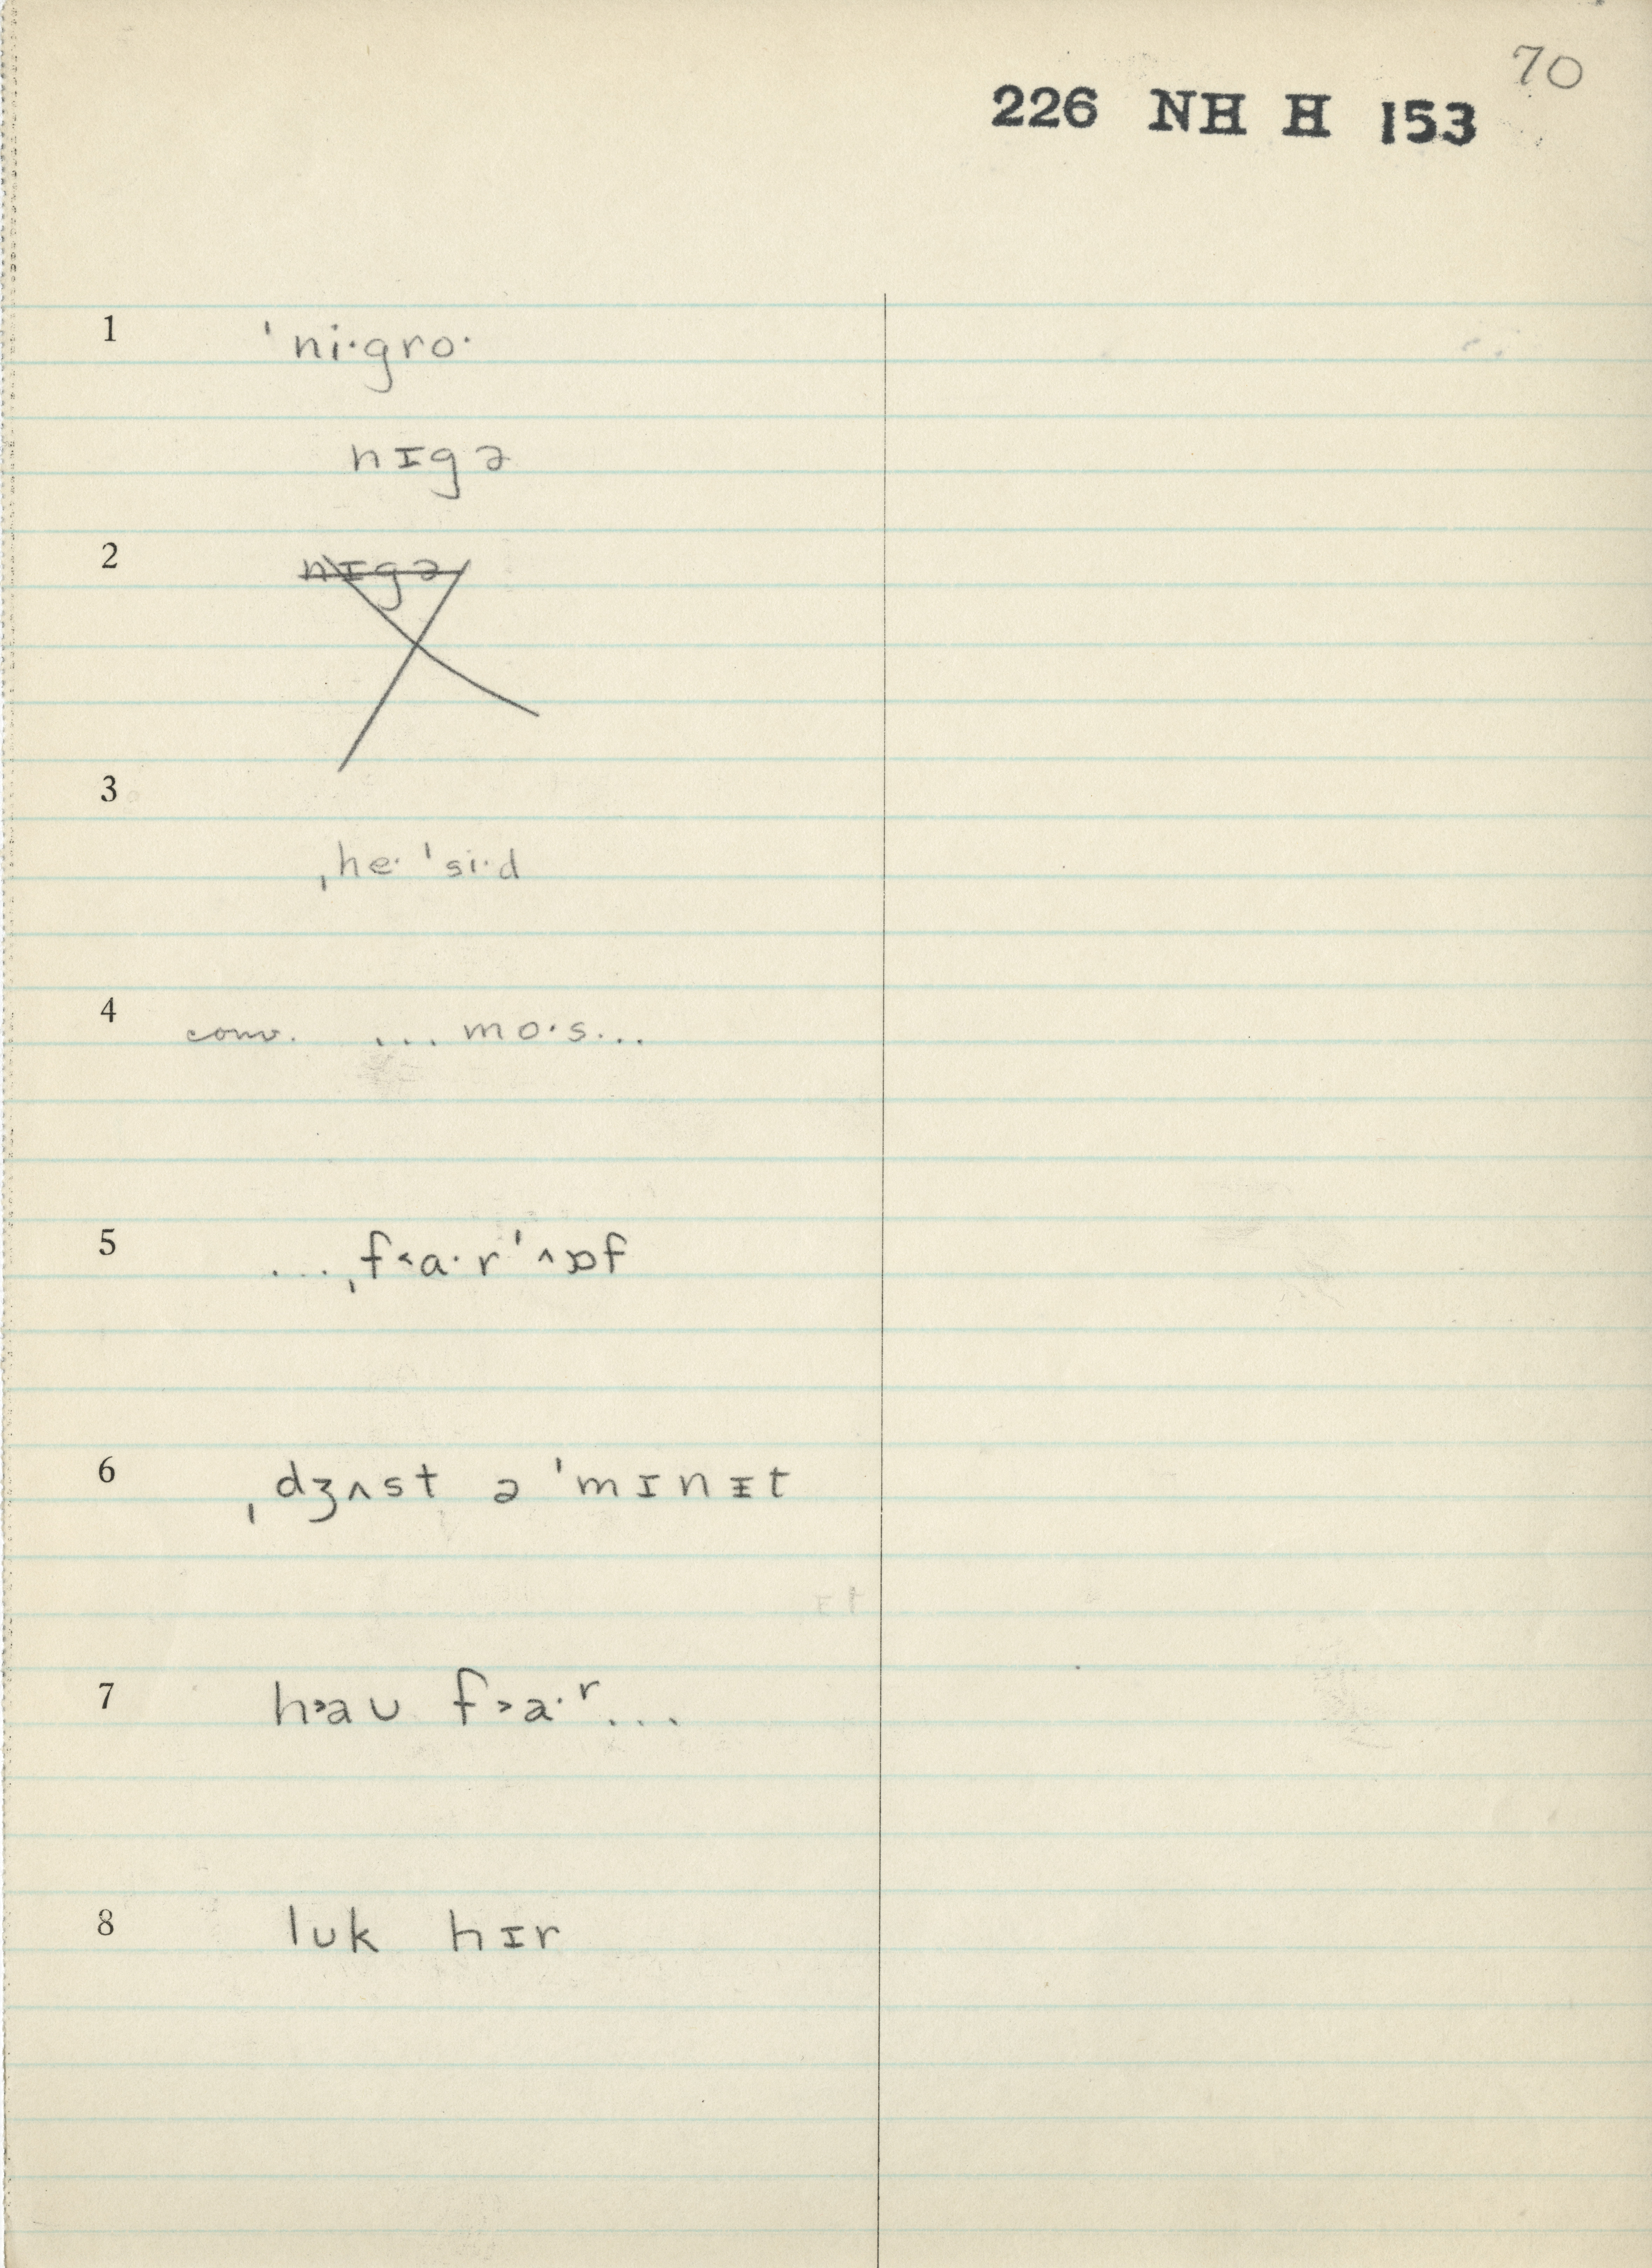 70
226 NH H 153
1 ˈni·gro·
nɪgə
2 nɪgə
3
ˌhe· ˈsi·d
4 conv. ... mo·s...
5 ...ˌf˂a·rˈ˄ɒf
6 ˌdʒʌst ə ˈmɪnɪ̵t
7 h˃aʊ f˃a·ʳ...
8 lʊk hɪr